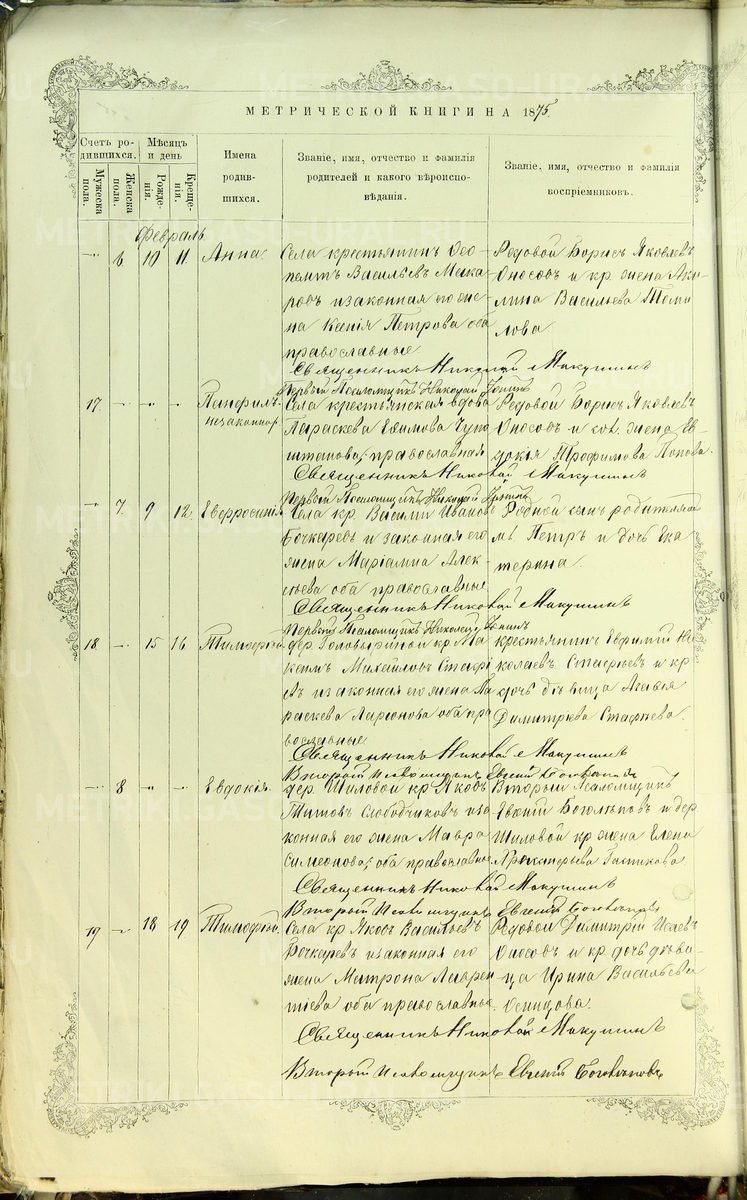 МЕТРИЧЕСКОЙ КНИГИ НА 1875.
Счетъ родившихся.
Мужеска пола.
Женска пола.
Мѣсяцъ и день
Рожденія.
Крещенія.
Имена родившихся.
Званіе, имя, отчество и фамилія родителей и какого вѣроисповѣданія.
Званіе, имя, отчество и фамилія воспріемниковъ.
Февраль
— 6 10 11. Анна.
Села крестьянинъ
Васильевъ Мака
ровъ и законная его же
на Ксенія Петрова оба
православные
Рядовой Борисъ Яковлевъ
Оносовъ и кр. жена Аку
лина Васильева Томи
лова
Священникъ Николай Макушинъ
Первый Псаломщикъ Николай
17. — " — Панфилъ
незаконнор.
Села крестьянская вдова
Параскева Ефимова
православная
Рядовой Борисъ Яковлевъ
Оносовъ и жена Ев
докія Трофимова Попова.
Священникъ Николай Макушинъ
Первый Псаломщикъ Николай
— 7. 9 12. Евфросинія
Села кр. Василій Ивановъ
Бочкаревъ и законная его
жена Маріамна Алек
сѣева оба православные
Родной сынъ родителямъ
Петръ и дочь Ека
терина.
Священникъ Николай Макушинъ
Первый Псаломщикъ Николай
18. — 15 16 Тимофей.
дер. Головыриной кр. Ма
ксимъ Михайловъ
и законная его жена Па
раскева Ларионова оба пра
вославные
крестьянинъ Ефимій Ни
колаевъ и кр
дочь дѣвица Агафья
Димитріева
Священникъ Николай Макушинъ
Второй Псаломщикъ Евгеній Боголѣповъ
— 8 " — Евдокія.
дер. Шиловой кр. Яковъ
Титовъ Слободчиковъ и за
конная его жена Мавра
Симеонова, оба православные
Вторый Псаломщикъ
Евгеній Боголѣповъ и дер.
Шиловой кр. жена Елена
Священникъ Николай Макушинъ
Второй Псаломщикъ Евгеній Боголѣповъ
19 — 18 19 Тимофей.
Села кр. Яковъ Васильевъ
Бочкаревъ и законная его
жена Матрона Лаврен
тіева оба православные.
Рядовой Димитрій Исаевъ
Оносовъ и кр. дочь дѣви
ца Ирина Васильева
Осинцова.
Священникъ Николай Макушинъ
Второй Псаломщикъ Евгеній Боголѣповъ